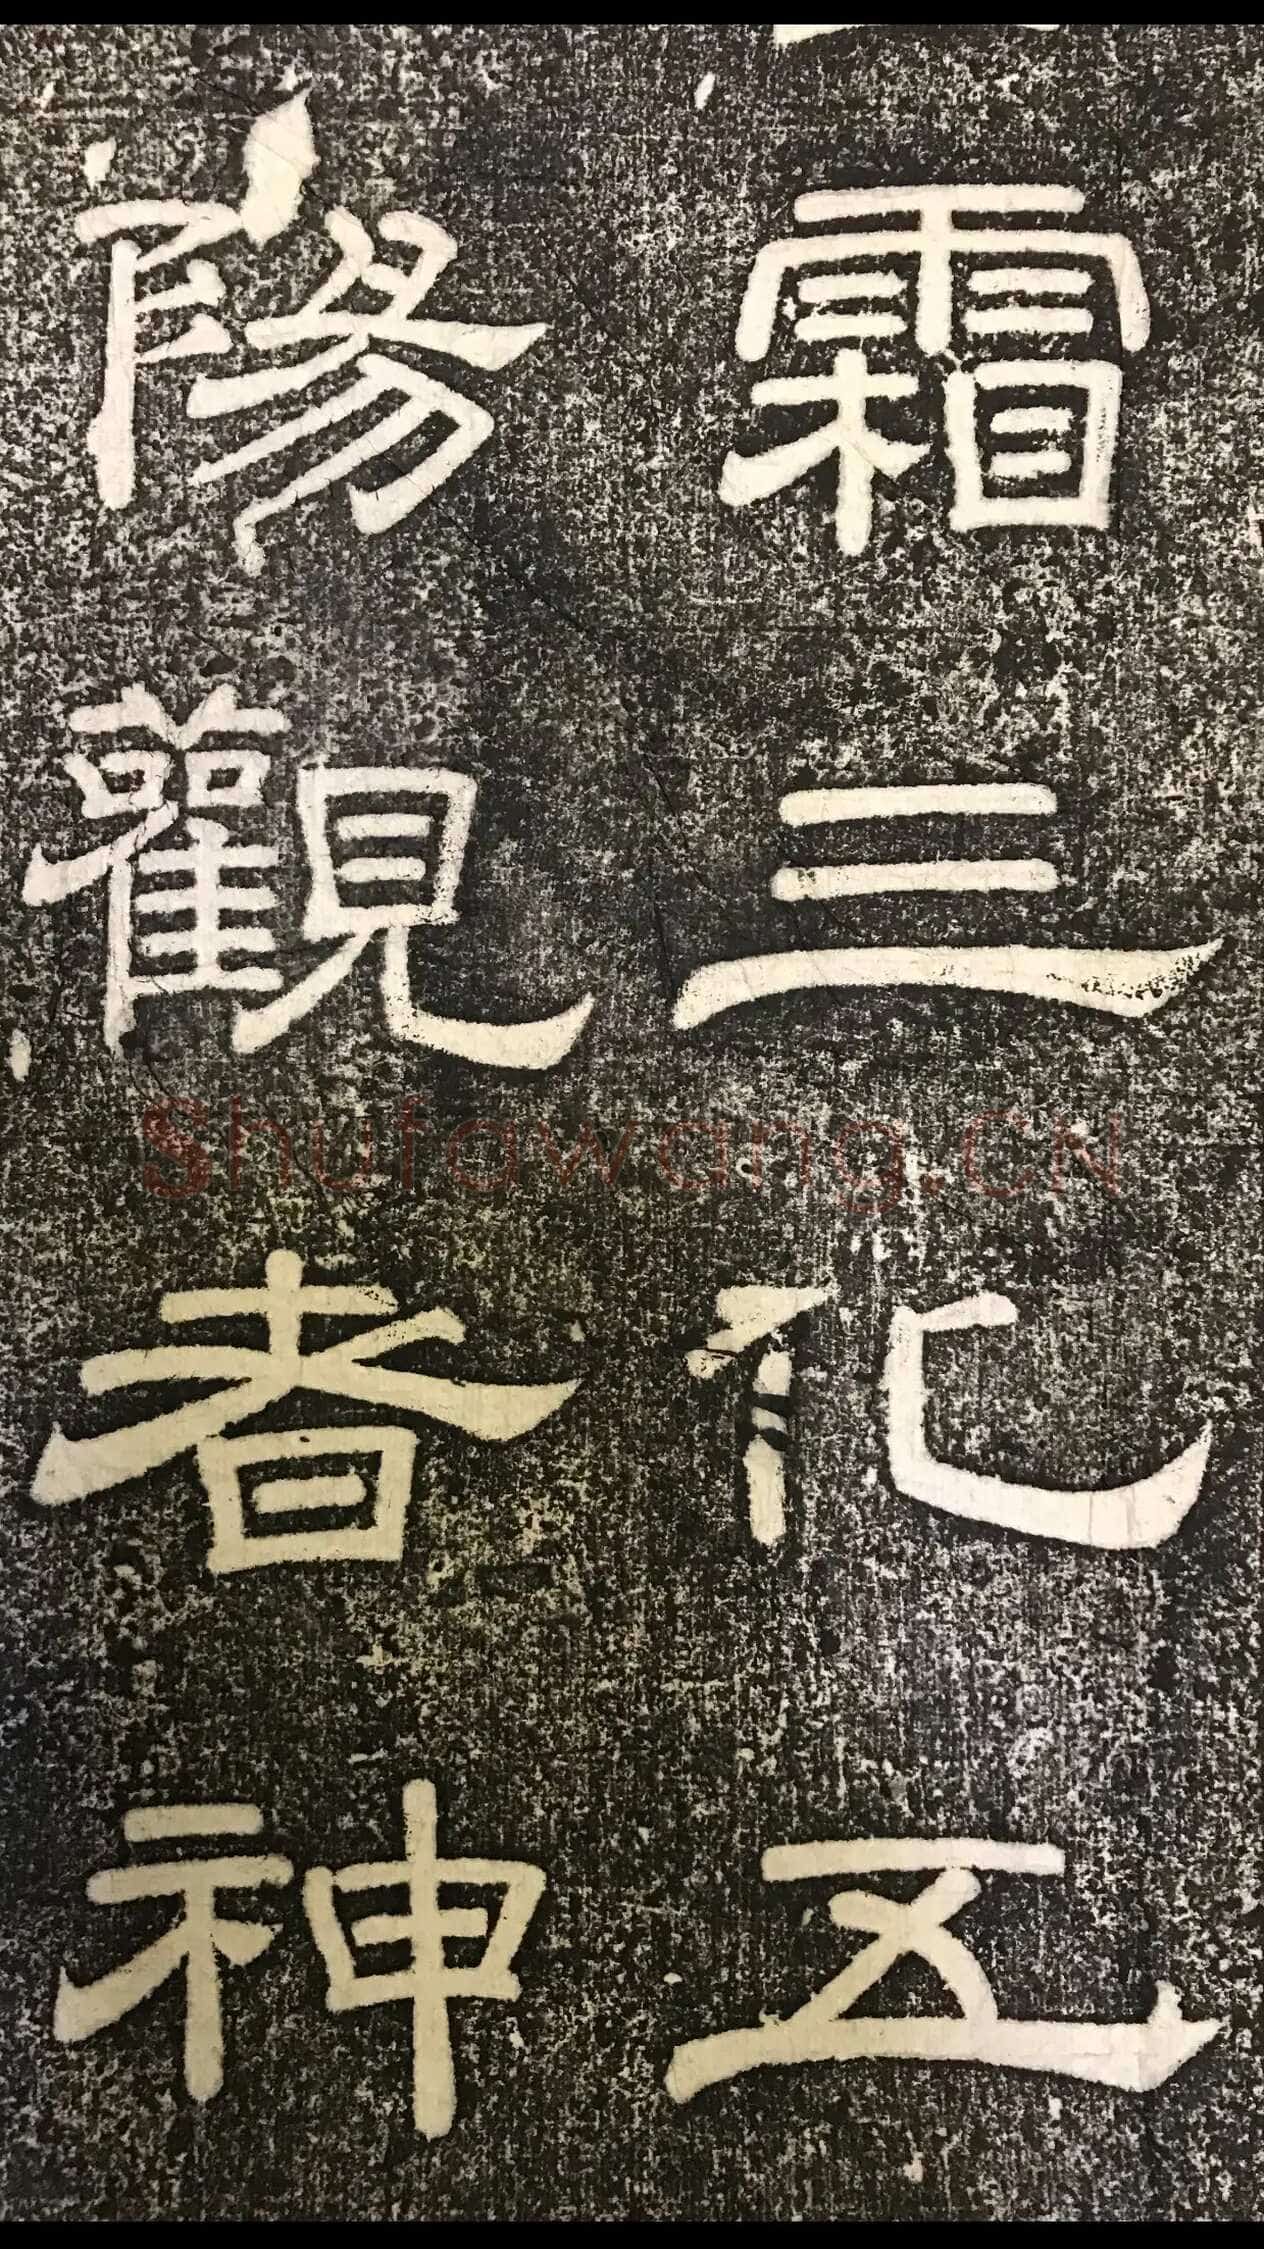 霜三化五
陽觀者神
Shufawang.CN